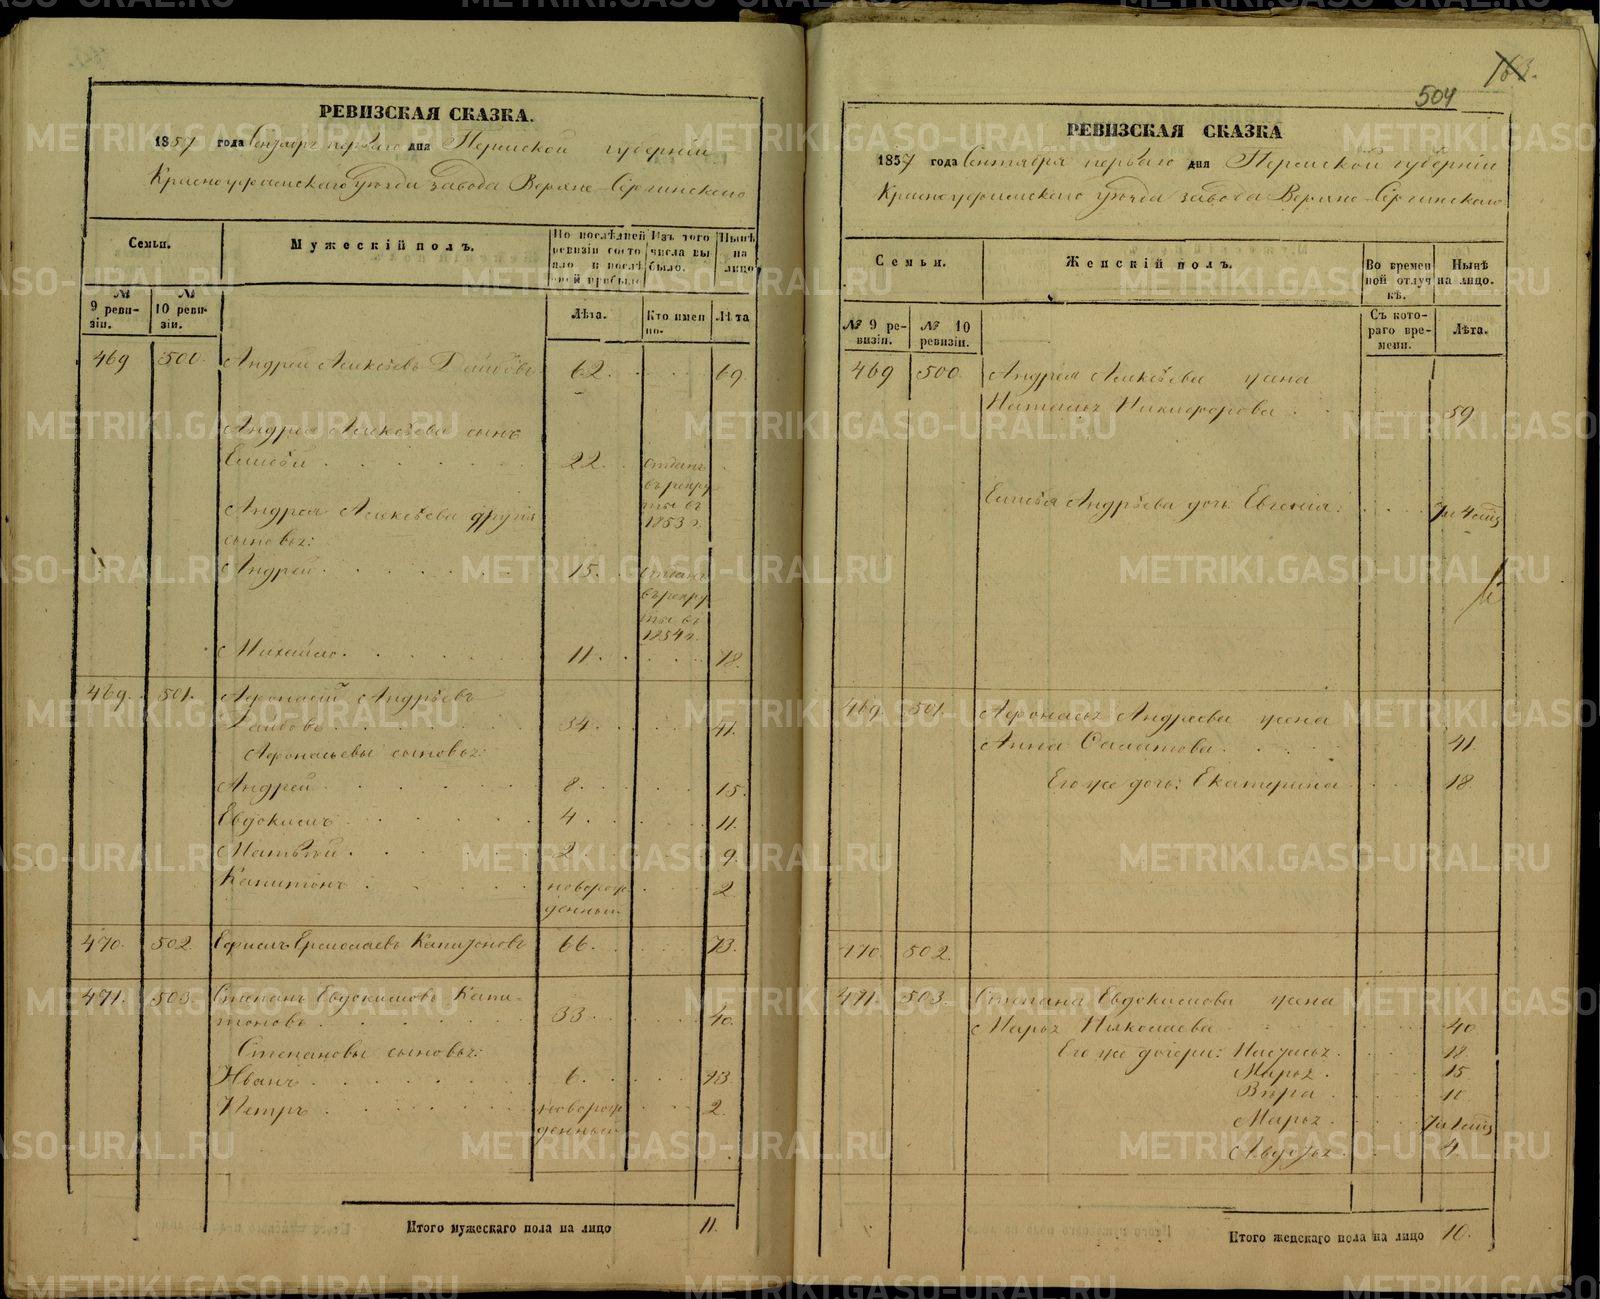 РЕВИЗСКАЯ СКАЗКА.
1857 года Сентября первого дня Пермской губерніи
Красноуфимскаго уѣзда завода Верхне-Сергинскаго
Семьи.
Мужескій полъ.
По послѣдней ревизіи состояло и послѣ оной прибыло
Изъ того числа выбыло.
Нынѣ на лицо
№ 9 ревизіи.
№ 10 ревизіи.
Лѣта.
Кто именно.
Лѣта
469 500. Андрей Алексѣевъ 62. 69.
Андрея Алексѣева сынъ
Елисѣй 22. отданъ въ рекруты въ 1853 г.
Андрея Алексѣева другія
сыновья:
Андрей 15. отданъ въ рекруты въ 1854 г.
Михайло 11. 18.
469. 501. Афонасій Андрѣевъ
34. 41.
Афонасьевы сыновья:
Андрей 8. 15.
Евдокимъ 4. 11.
Матвѣй 2. 9.
Капитонъ новорожденный 2.
470. 502. Ефимъ Ермолаевъ Капитоновъ 66. 73.
471. 503. Степанъ Евдокимовъ Капи-
тоновъ 33. 40.
Степановы сыновья:
Иванъ 6. 13.
Петръ новорожденный 2.
Итого мужескаго пола на лицо 11.
163.
504
РЕВИЗСКАЯ СКАЗКА
1857 года Сентября первого дня Пермской губерніи
Красноуфимскаго уѣзда завода Верхне-Сергинскаго
Семьи.
Женскій полъ.
Во временной отлучкѣ.
Нынѣ на лицо.
№ 9 ревизіи.
№ 10 ревизіи.
Съ котораго времени.
Лѣта.
469 500. Андрея Алексѣева жена
Наталья Никифорова 59.
Елисѣя Андрѣева дочь Евгенія
469 501 Афонасья Андреева жена
Анна 41.
Его же дочь: Екатерина 18.
470. 502.
471. 503. Степана Евдокимова жена
Марья Николаева 40
Его же дочери: Настасья 18.
Марья 15
Вѣра 10
Марья
Авдотья 4.
Итого женскаго пола на лицо 10.
METRIKI.GASO-URAL.RU